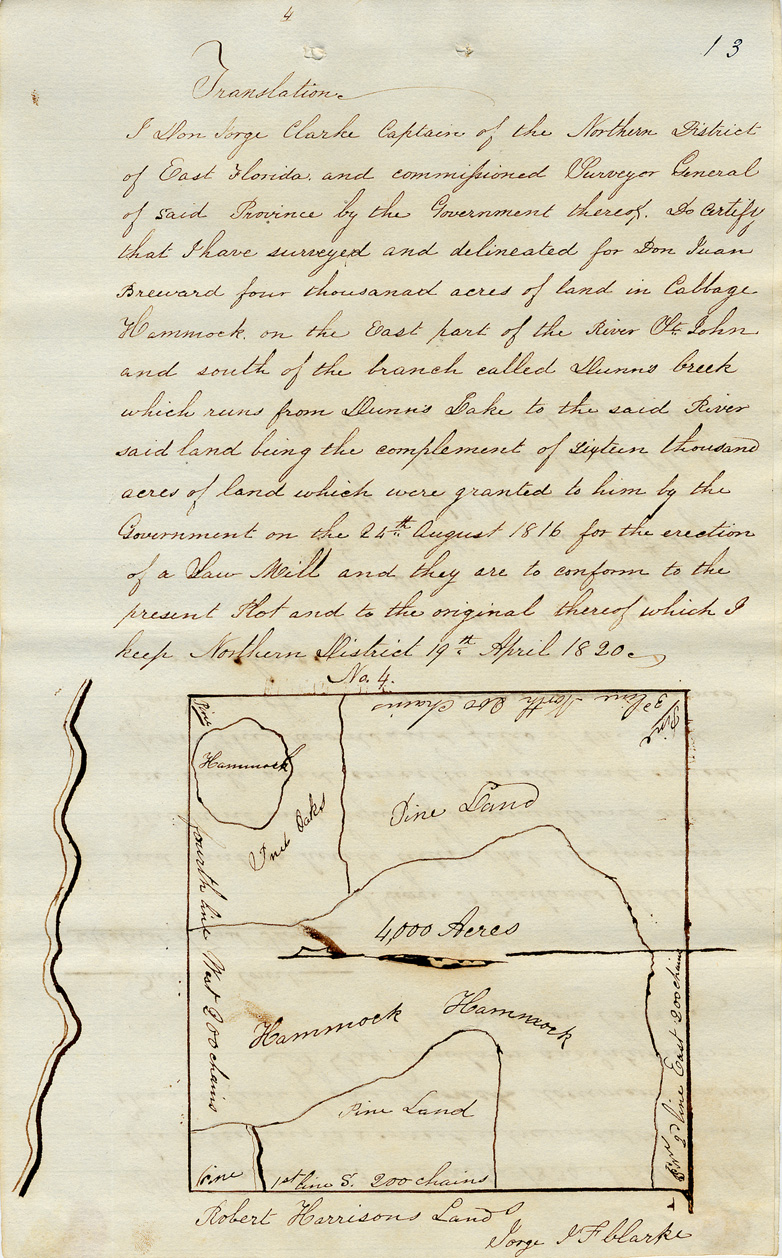 4
13
Translation
I Don Jorge Clarke Captain of the Northern District
of East Florida, and commissioned Surveyor General
of said Province by the Government thereof. Do Certify
that I have surveyed and delineated for Don Juan
Breward four thousanad acres of land in Cabbage
Hammock, on the East part of the River St. John
and south of the branch called Dunn's Creek
which runs from Dunn's Lake to the said River
said land being the complement of Sixteen thousand
acres of land which were granted to him by the
Government on the 24th August 1816 for the erection
of a Saw Mill and they are to conform to the
present Plot and to the original thereof which I
keep Northern District 19th April 1820
No. 4.
3d line North 200 chains
Pine
Pine
Hammock
Pine Land
Oaks
fourth line West 200 chains
4,000 Acres
Hammock Hammock
2d line East 200 chains
Pine Land
Pine
1st line S. 200 chains
Robert Harrisons Land
Jorge J F Clarke